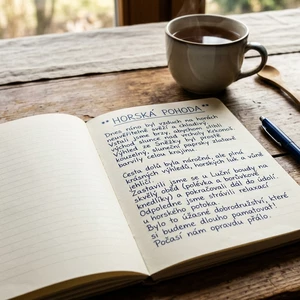 " HORSKÁ POHODA "
Dnes ráno byl vzduch na horách
neuvěřitelně svěží a chladivý.
Vstali jsme brzy, abychom stihli
východ slunce nad vrcholy Krkonoš.
Výhled ze Sněžky byl prostě
kouzelný, sluneční paprsky zlatily
barvily celou krajinu.
Cesta dolů byla náročná, ale plná
krásných výhledů, horských luk a vůně
jehličí.
Zastavili jsme se u Luční boudy na
skvělý oběd (polévka a borůvkové
knedlíky) a pokračovali dál do údolí.
Odpoledne jsme strávili relaxací
u horského potoka.
Bylo to úžasné dobrodružství, které
si budeme dlouho pamatovat!
Počasí nám opravdu přálo.